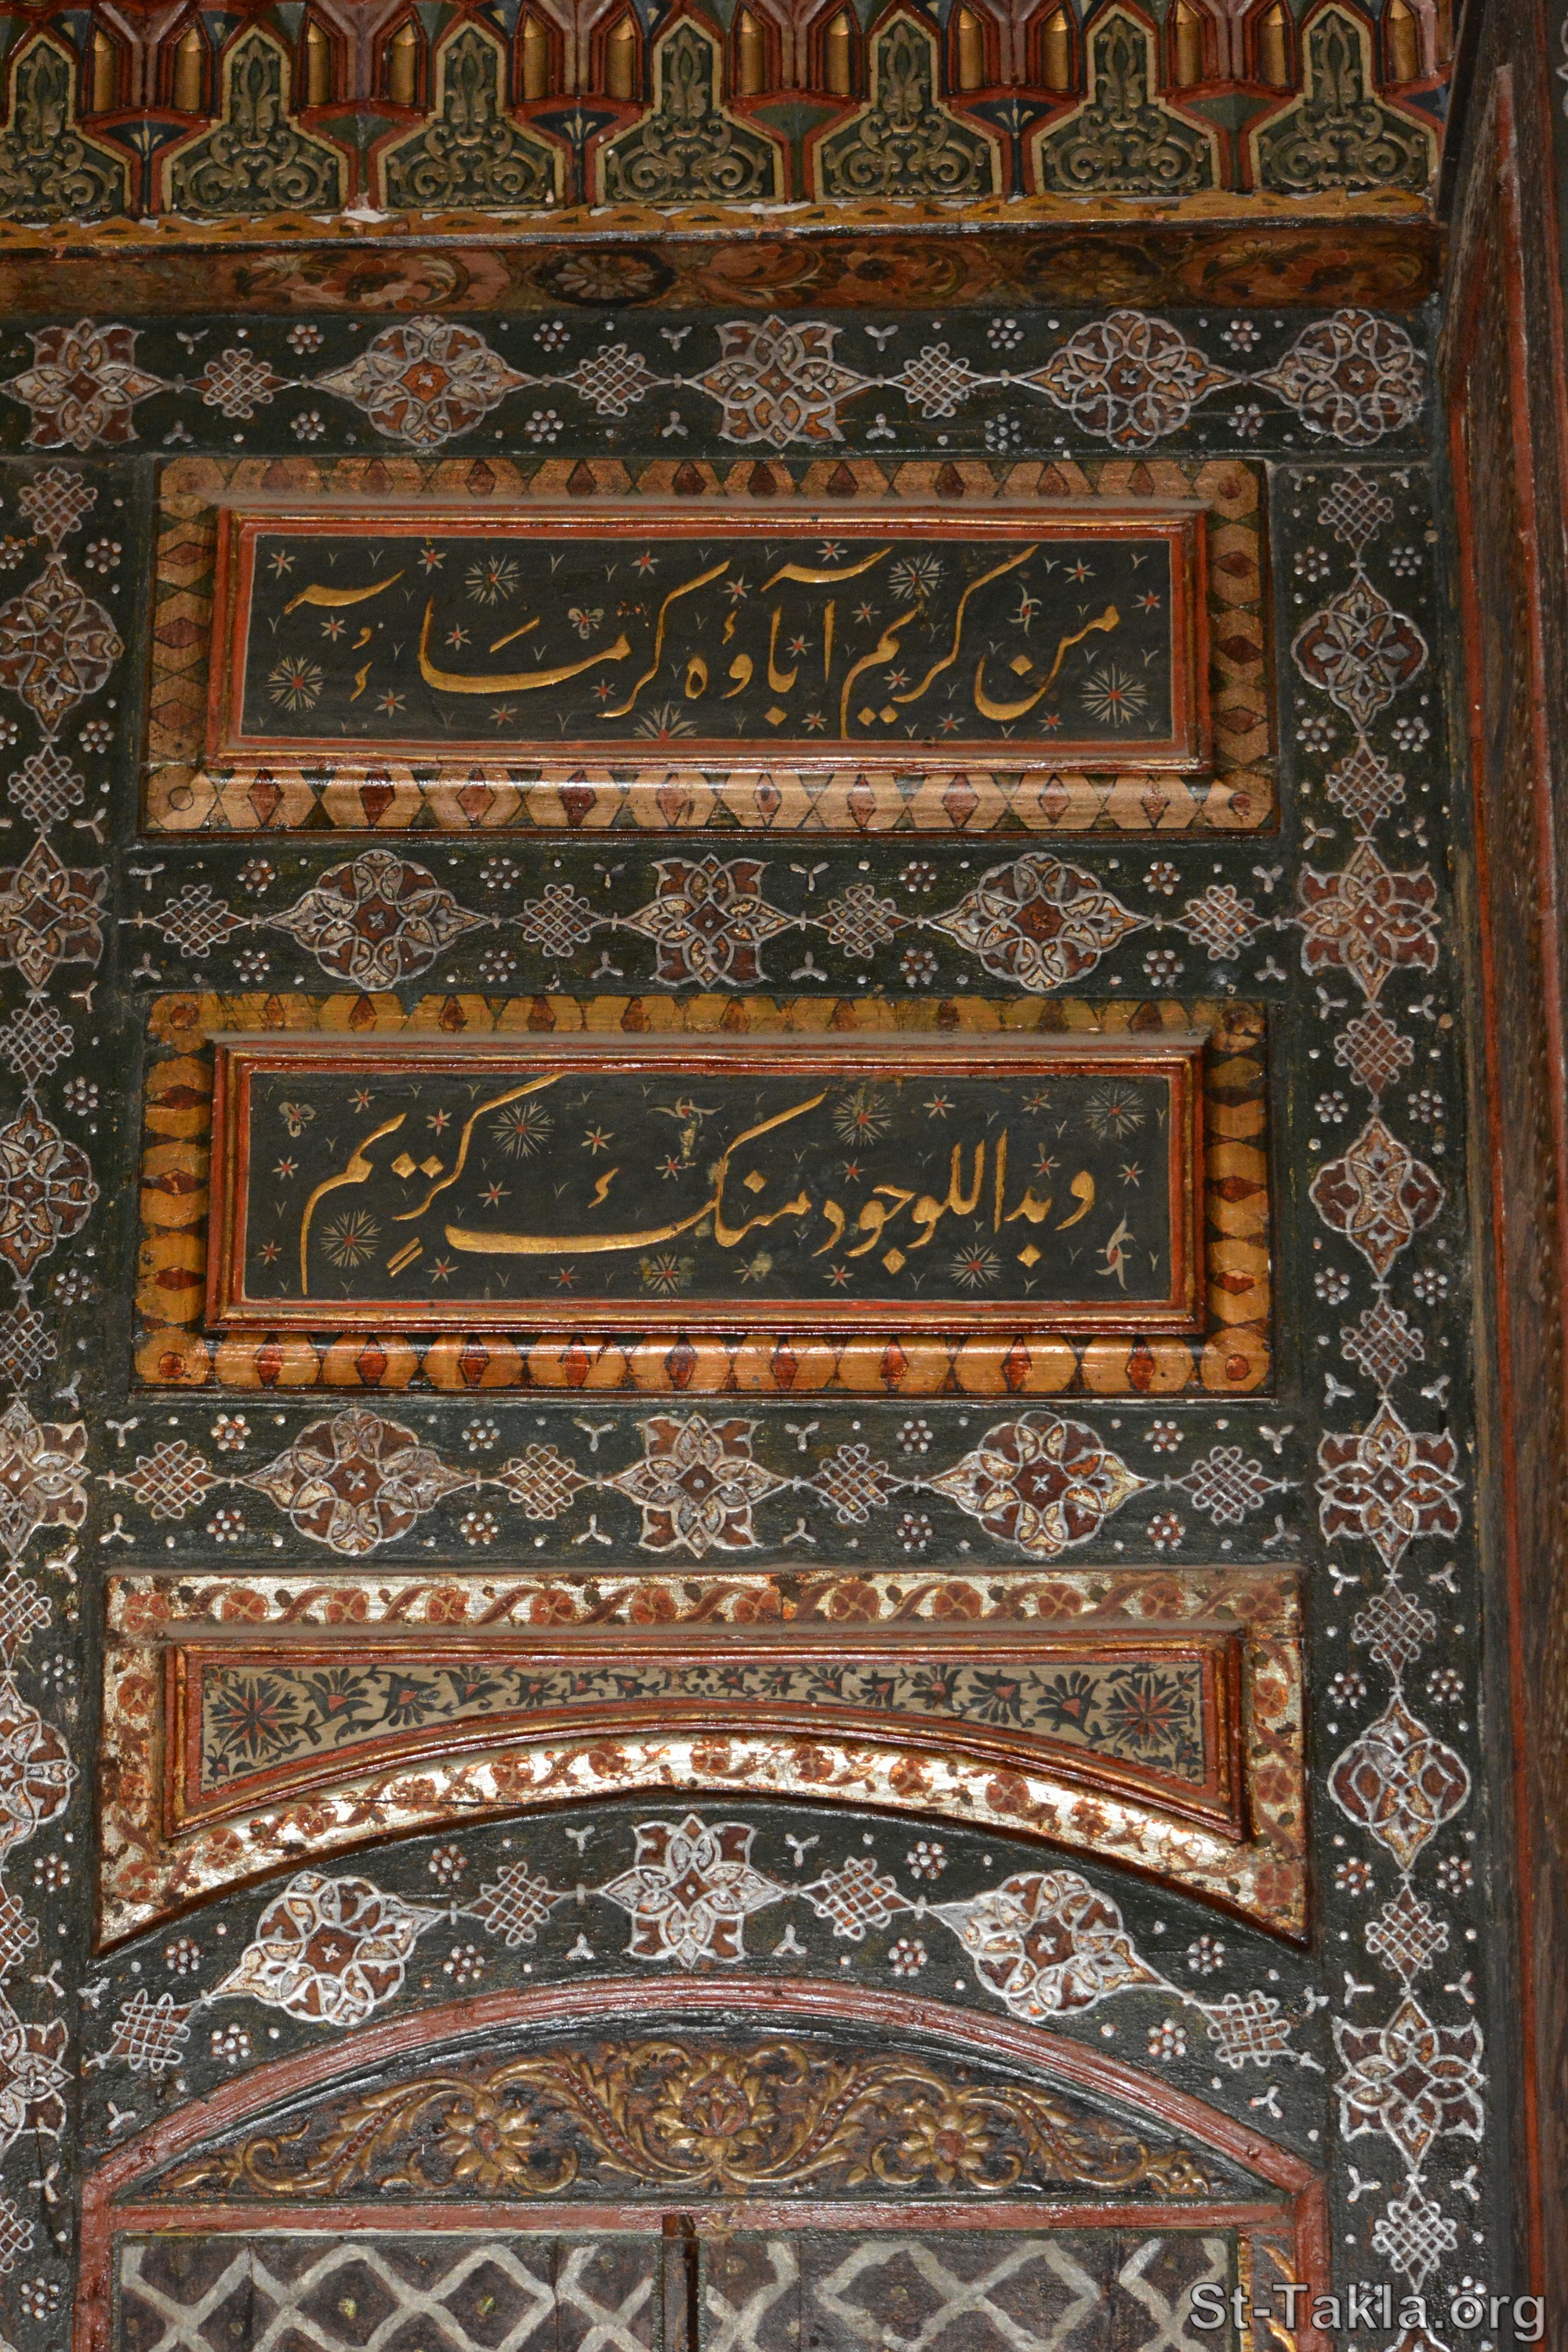 من كريم آباؤه كرماءُ
وبدا للوجود منك كريم
St-Takla.org